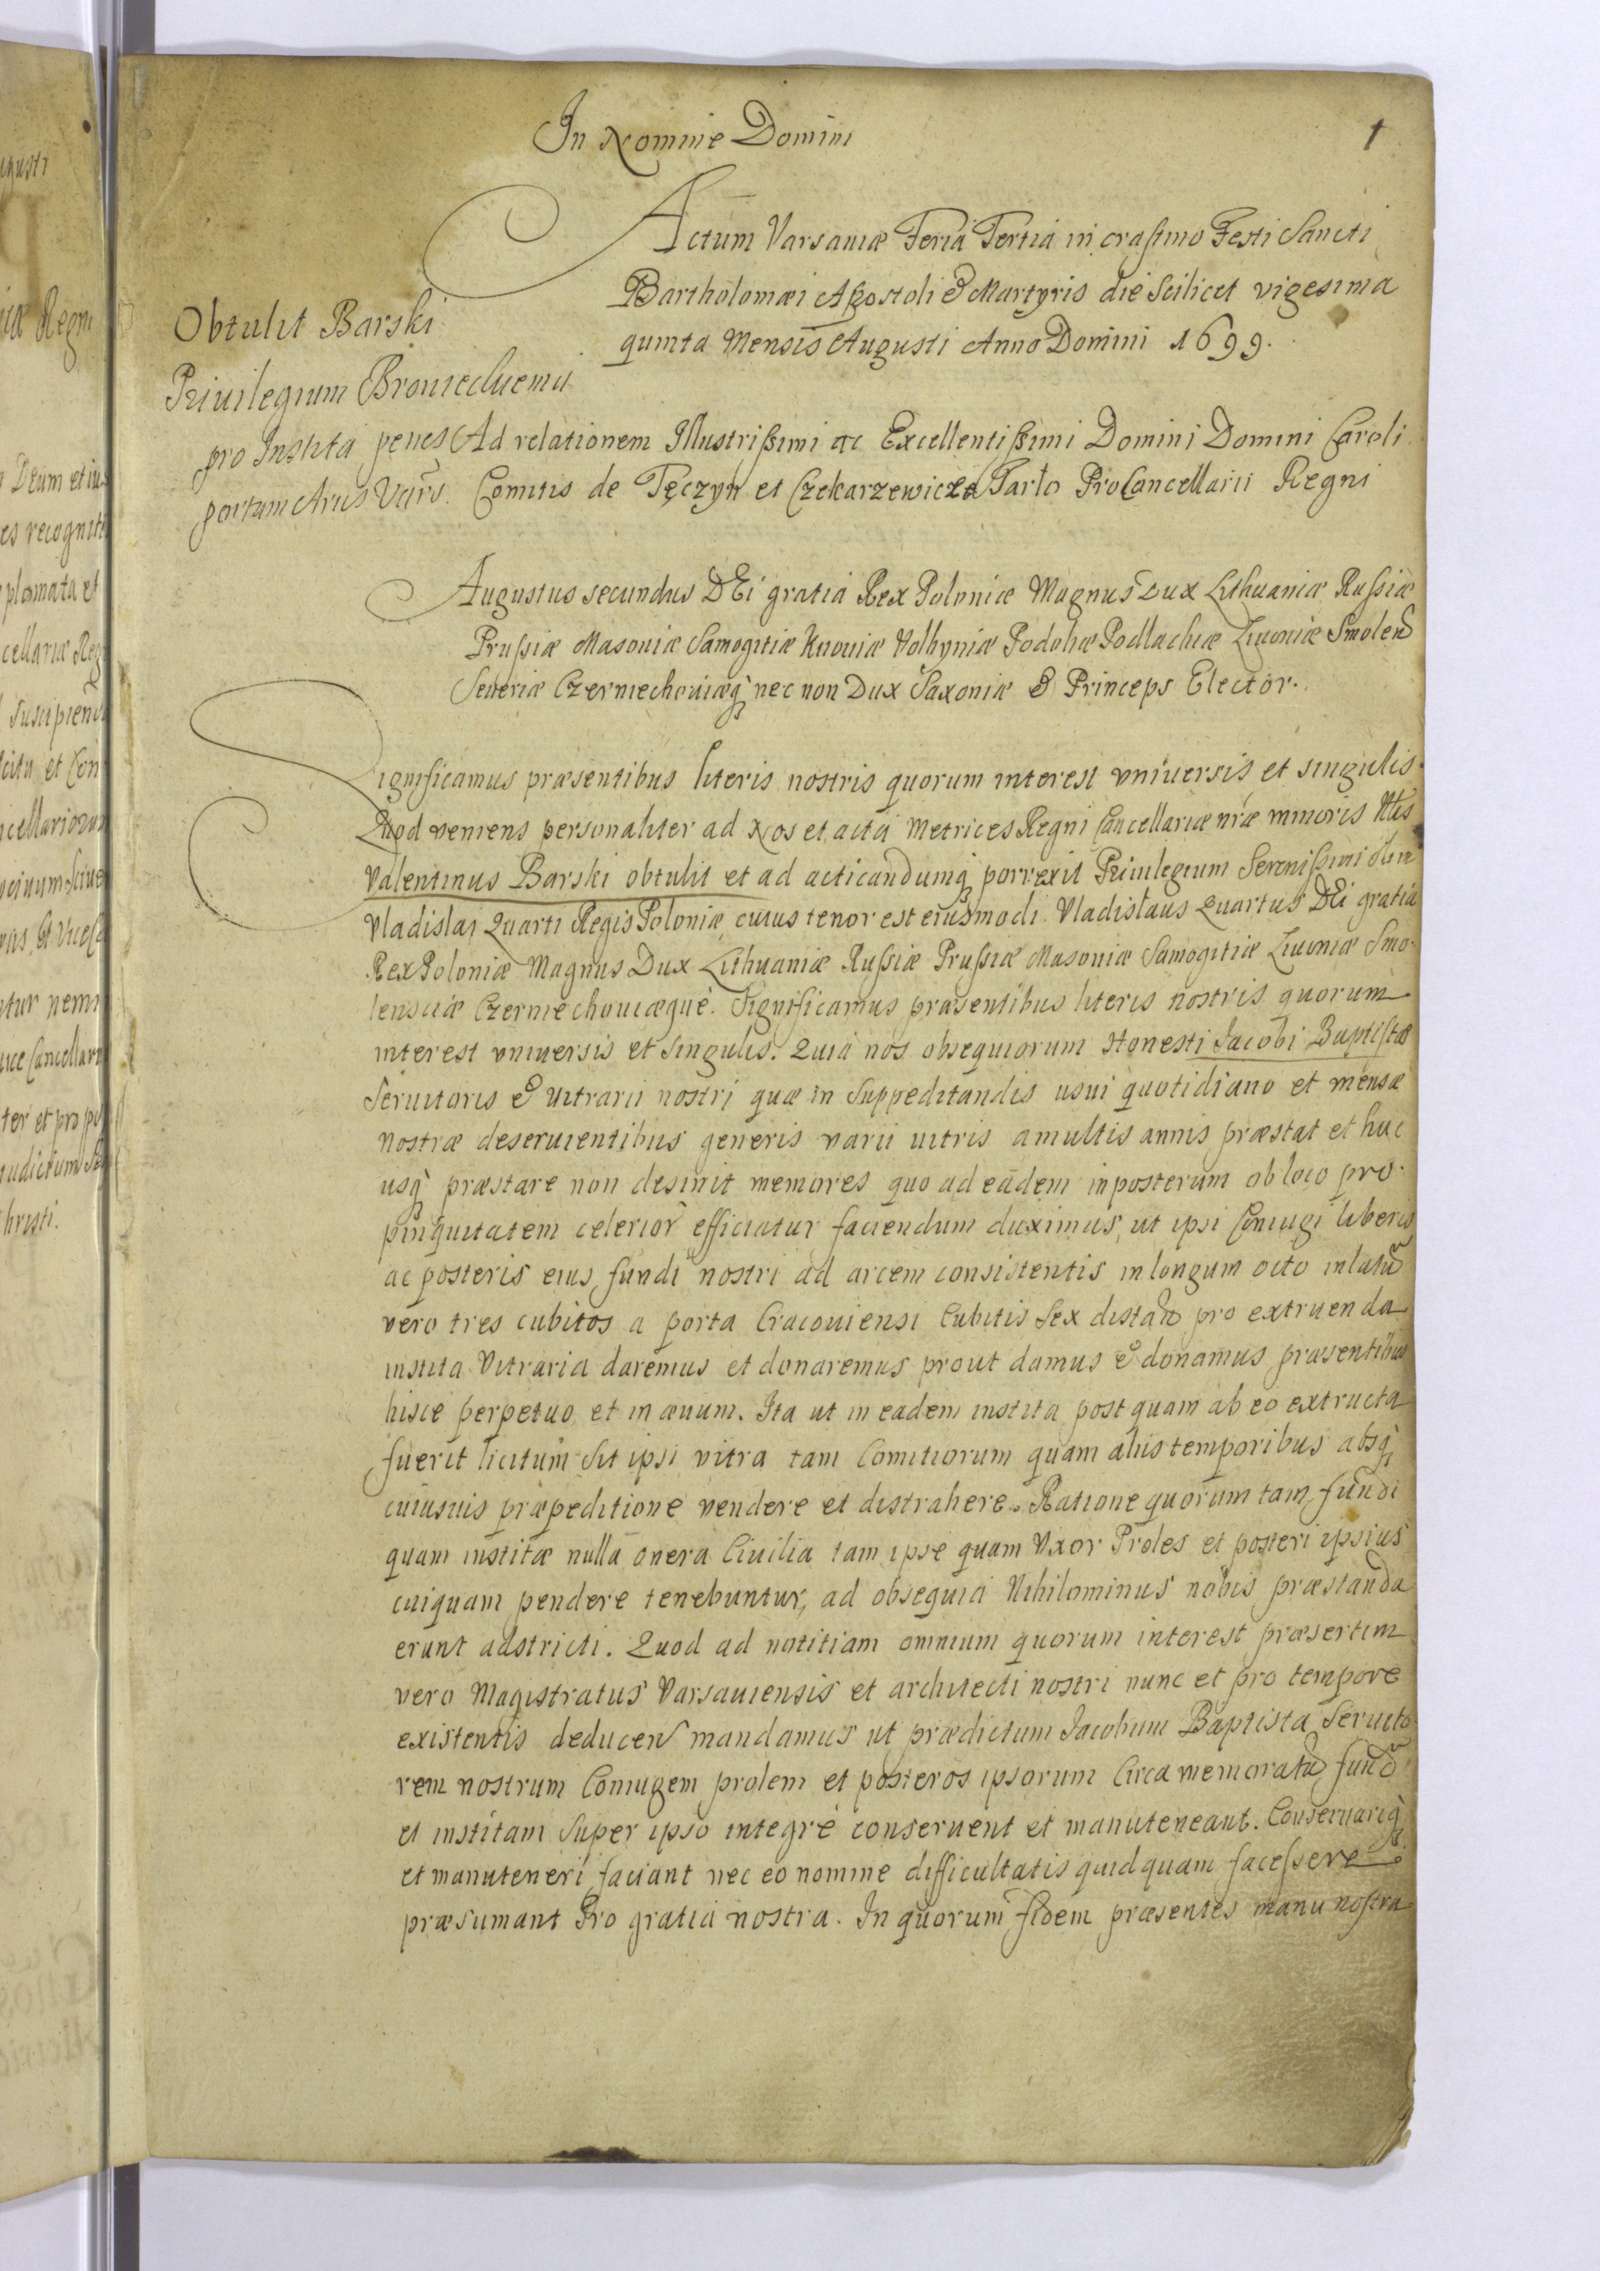 In Nomine Domini
1
Actum Varsaviæ Feria Tertia in crastino Festi Sancti
Bartholomæi Apostoli & Martyris die Scilicet vigesima
quinta Mensis Augusti Anno Domini 1699.
Obtulit Barski
Privilegium
pro Instita penes
portam Arcis Vars.
Ad relationem Illustrissimi ac Excellentissimi Domini Domini Caroli
Comitis de Tęczyn et Czekarzewice Tarlo ProCancellarii Regni
Augustus secundus DEi gratia Rex Poloniæ Magnus Dux Lithuaniæ Russiæ
Prussiæ Masoviæ Samogitiæ Kijoviæ Volhyniæ Podoliæ Podlachiæ Livoniæ Smolen
Severiæ Czerniechoviæq nec non Dux Saxoniæ & Princeps Elector.
Significamus præsentibus literis nostris quorum interest vniversis et singulis.
Quod veniens personaliter ad Nos et acta Metrices Regni Cancellariæ nræ minoris Nlis
Valentinus Barski obtulit et ad acticandumq porrexit Privilegium Serenissimi olim
Vladislai Quarti Regis Poloniæ cuius tenor est eiusmodi. Vladislaus Quartus DEi gratia
Rex Poloniæ Magnus Dux Lithuaniæ Russiæ Prussiæ Masoviæ Samogitiæ Livoniæ Smo-
lensciæ Czerniechoviæque. Significamus præsentibus literis nostris quorum
interest vniversis et singulis. Quia nos obsequiorum Honesti Jacobi Baptistæ
Servitoris & vitrarii nostri quæ in suppeditandis usui quotidiano et mensæ
nostræ deservientibus generis varii vitris a multis annis præstat et huc
usq præstare non desinit memores quo ad eadem in posterum ob loco pro-
pinquitatem celerior efficiatur faciendum duximus, ut ipsi Coniugi liberis
ac posteris eius fundi nostri ad arcem consistentis in longum octo in latu
vero tres cubitos a porta Cracoviensi Cubitis Sex distan pro extruenda
instita Vitraria daremus et donaremus prout damus & donamus præsentibus
hisce perpetuo et in ævum. Ita ut in eadem instita post quam ab eo extructa
fuerit licitum sit ipsi vitra tam Comitiorum quam aliis temporibus absq
cuiusvis præpeditione vendere et distrahere. Ratione quorum tam fundi
quam institæ nulla onera Civilia tam ipse quam Vxor Proles et posteri ipsius
cuiquam pendere tenebuntur, ad obsequia Nihilominus nobis præstanda
erunt adstricti. Quod ad notitiam omnium quorum interest præsertim
vero Magistratus Varsaviensis et architecti nostri nunc et pro tempore
existentis deducen mandamus ut prædictum Jacobum Baptista Servito-
rem nostrum Coniugem prolem et posteros ipsorum Circa memoratu fund
et institam super ipso integre conservent et manuteneant. Conservariq
et manuteneri faciant nec eo nomine difficultatis quidquam facessere
præsumant Pro gratia nostra. In quorum fidem præsentes manu nostra